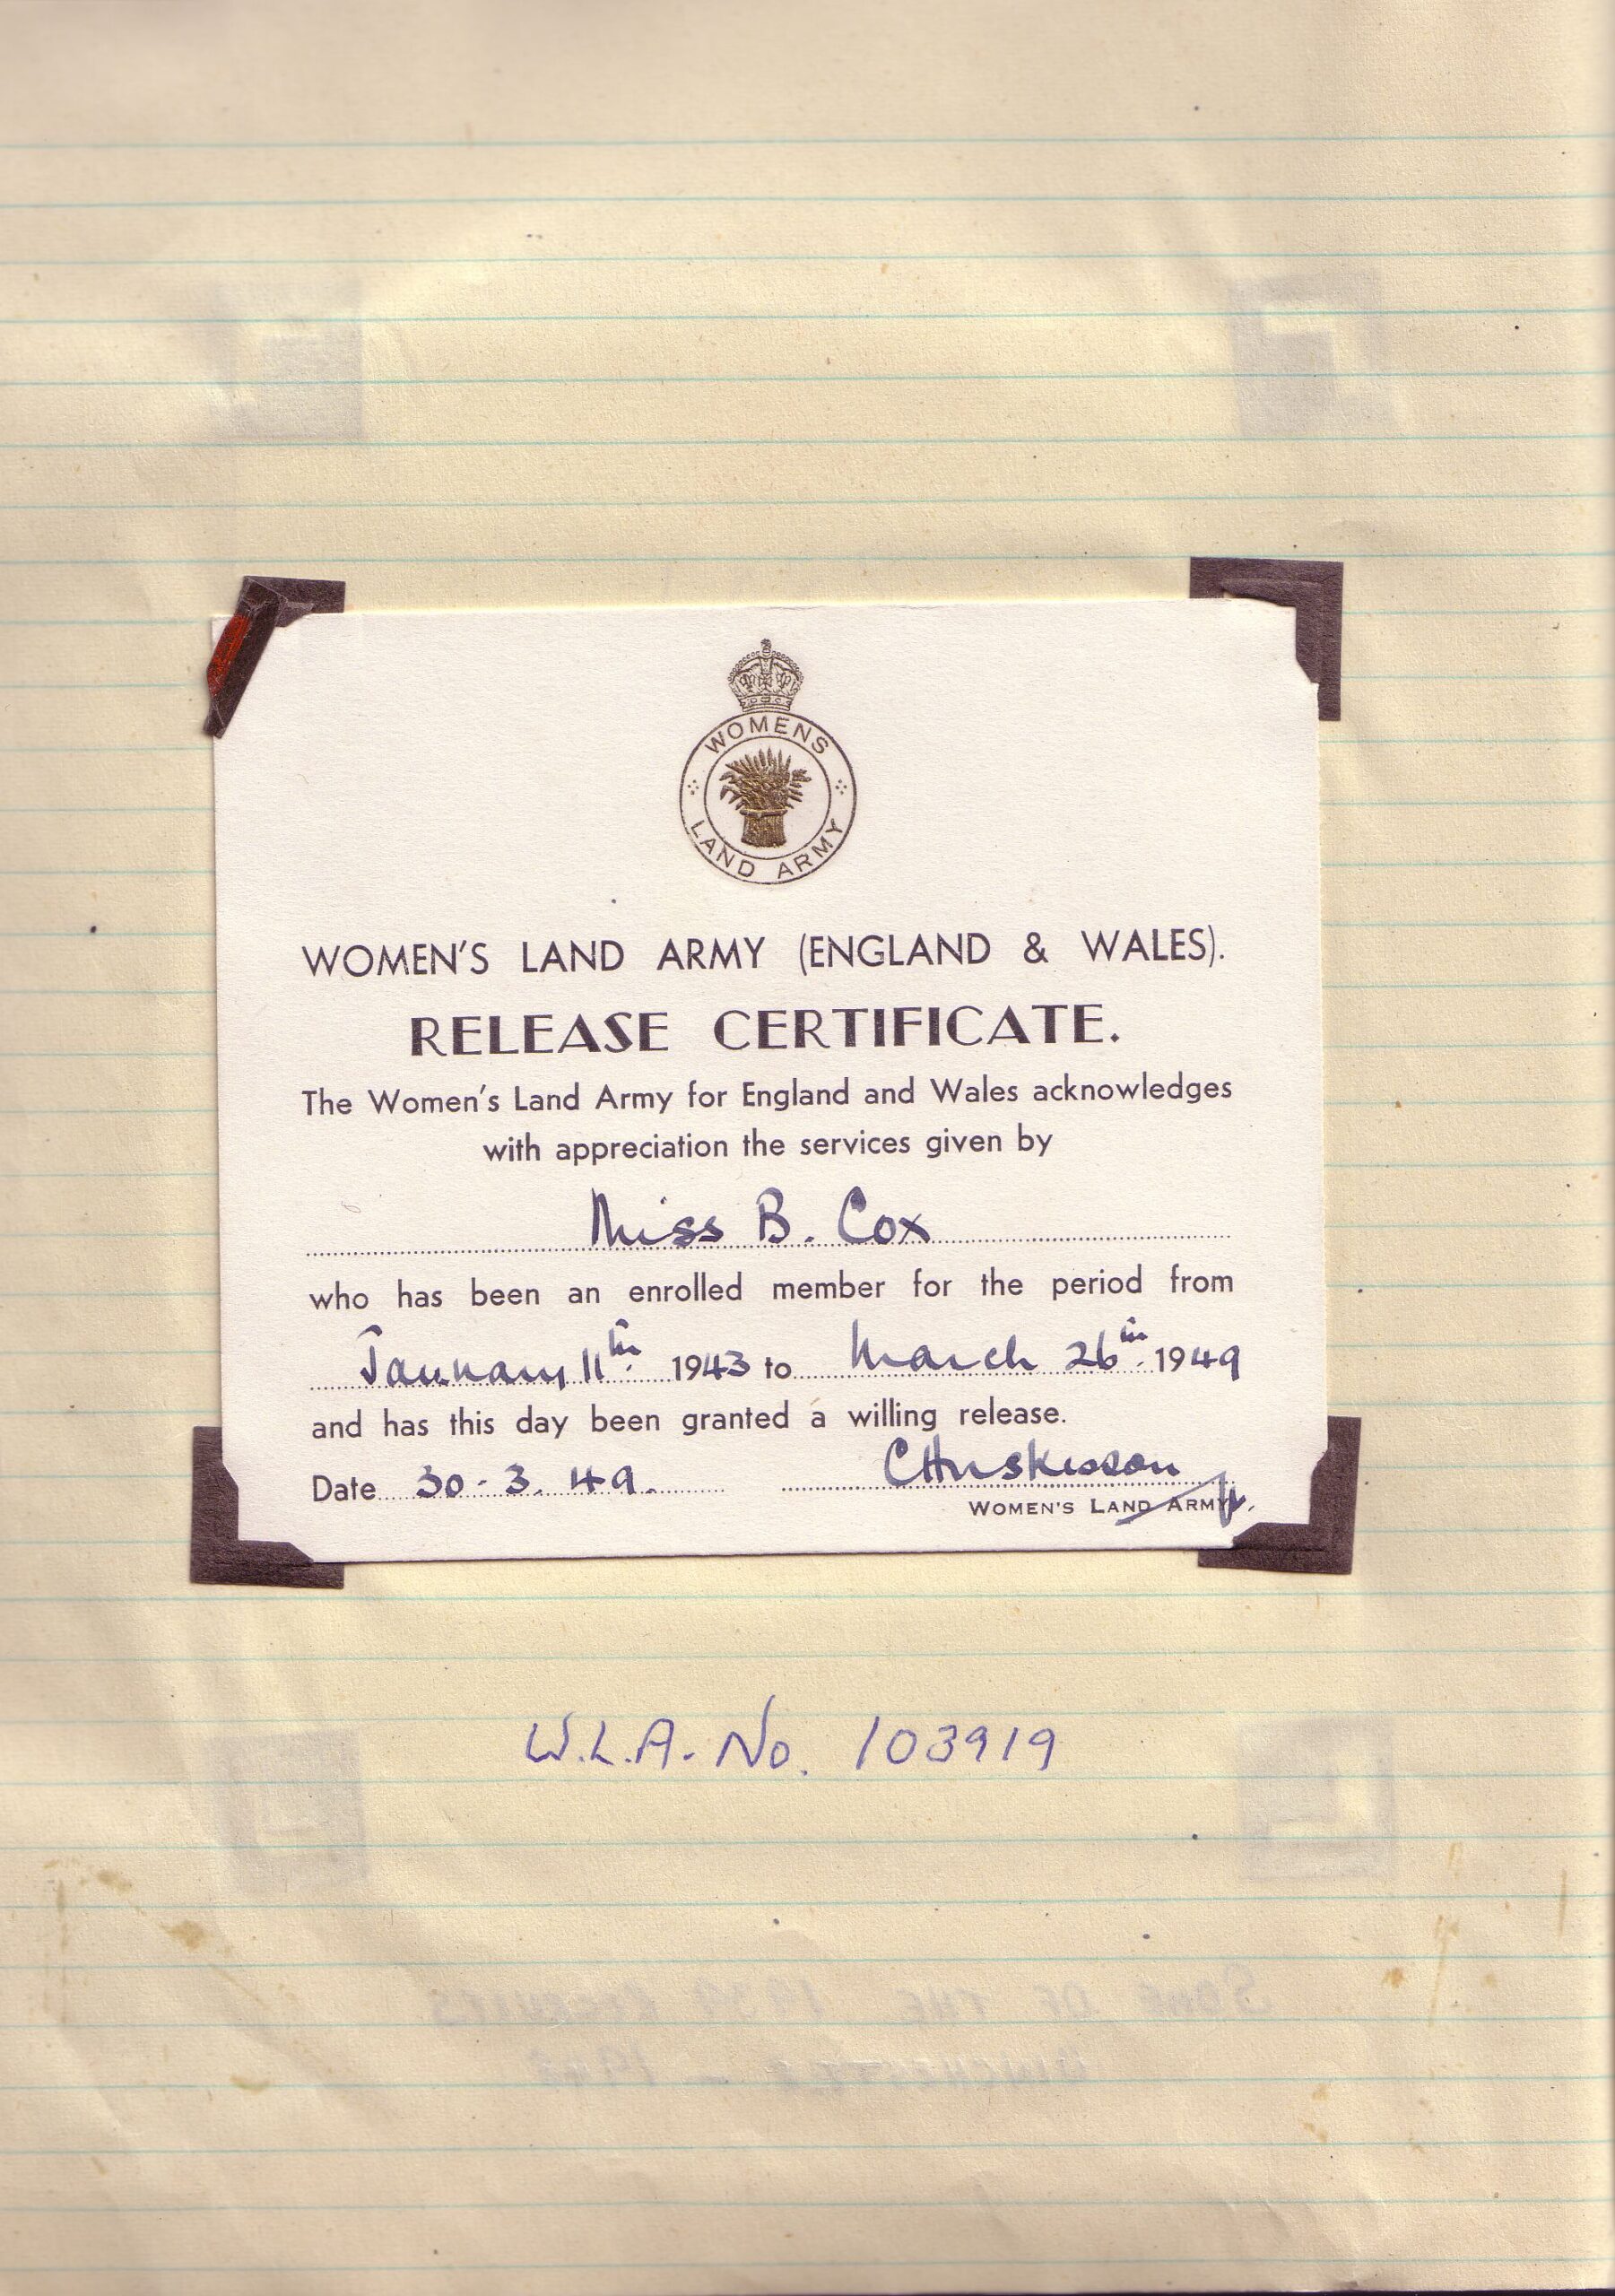 WOMENS
LAND ARMY
WOMEN'S LAND ARMY (ENGLAND & WALES).
RELEASE CERTIFICATE.
The Women's Land Army for England and Wales acknowledges
with appreciation the services given by
Miss B. Cox
who has been an enrolled member for the period from
January 11th 1943 to March 26th 1949
and has this day been granted a willing release.
Date 30-3.49. CHuskisson
WOMEN'S LAND ARMY.
W.L.A. No. 103919
SOME OF THE
WINCHESTER